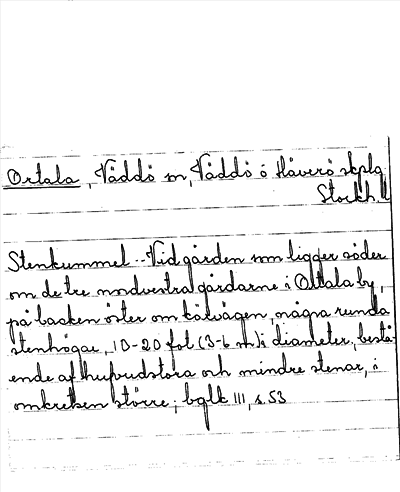 Ortala, Väddö sn, Väddö o Häverö skplg
Stockh. l
Stenkummel. - Vid gården som ligger söder
om de tre nordvestra gårdarne i Ortala by,
på backen öster om byvägen, några runda
stenhögar, 10-20 fot (3-6 m) i diameter, bestå-
ende af hufvudstora och mindre stenar, i
omkretsen större; bglk III, s. 53